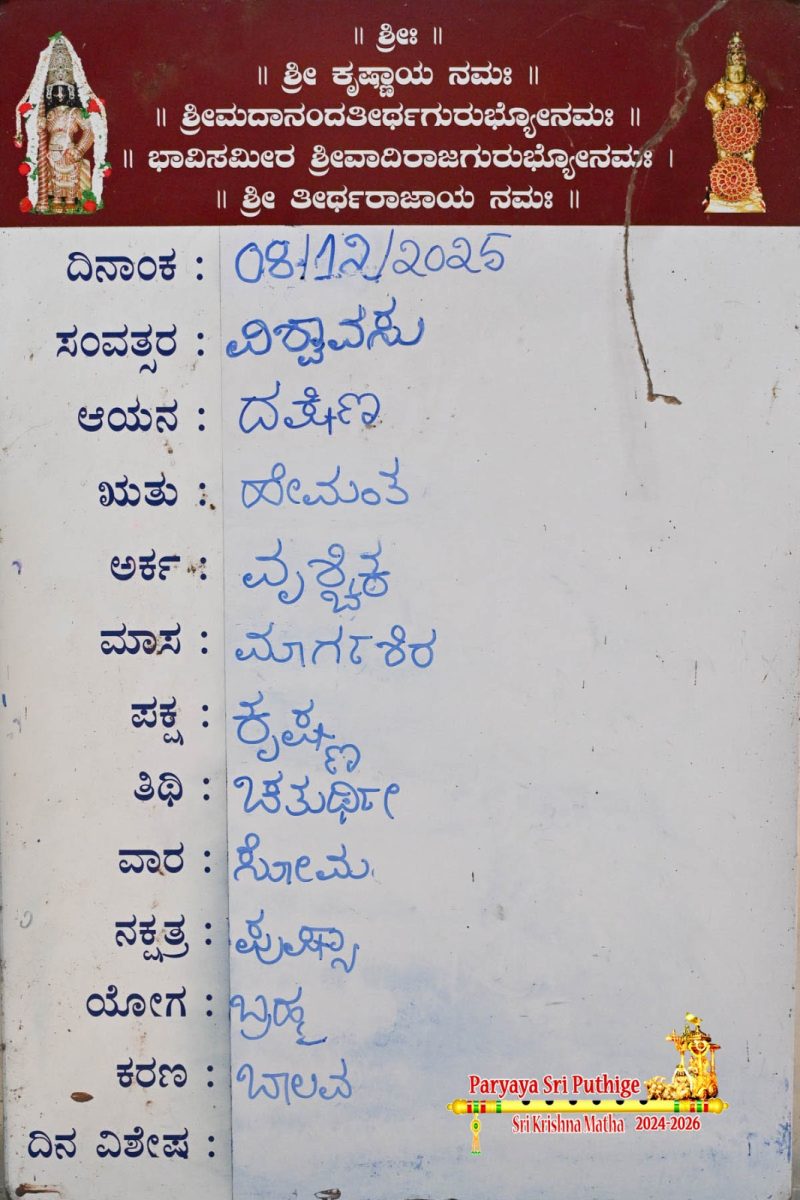 ॥ ಶ್ರೀಃ ॥
॥ ಶ್ರೀ ಕೃಷ್ಣಾಯ ನಮಃ ॥
॥ ಶ್ರೀಮದಾನಂದತೀರ್ಥಗುರುಭ್ಯೋನಮಃ ॥
॥ ಭಾವಿಸಮೀರ ಶ್ರೀವಾದಿರಾಜಗುರುಭ್ಯೋನಮಃ ।
॥ ಶ್ರೀ ತೀರ್ಥರಾಜಾಯ ನಮಃ ॥
ದಿನಾಂಕ : 08/12/2025
ಸಂವತ್ಸರ : ವಿಶ್ವಾವಸು
ಆಯನ : ದಕ್ಷಿಣ
ಋತು : ಹೇಮಂತ
ಅರ್ಕ : ವೃಶ್ಚಿಕ
ಮಾಸ : ಮಾರ್ಗಶಿರ
ಪಕ್ಷ : ಕೃಷ್ಣ
ತಿಥಿ : ಚತುರ್ಥೀ
ವಾರ : ಸೋಮ
ನಕ್ಷತ್ರ : ಪುಷ್ಯಾ
ಯೋಗ : ಬ್ರಹ್ಮ
ಕರಣ : ಬಾಲವ
ದಿನ ವಿಶೇಷ :
Paryaya Sri Puthige
Sri Krishna Matha 2024-2026